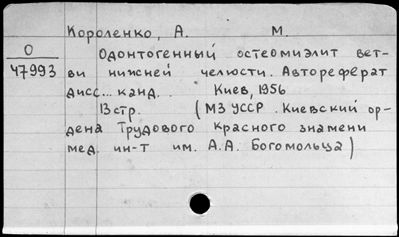 Короленко, А. М.
О
47993
Одонтогенный остеомиэлит вет-
ви нижней челюсти. Автореферат
дисс... канд. Киев, 1956
13 стр. (МЗ УССР. Киевский ор-
дена Трудового красного знамени
мед. ин-т им. А.А. Богомольца)